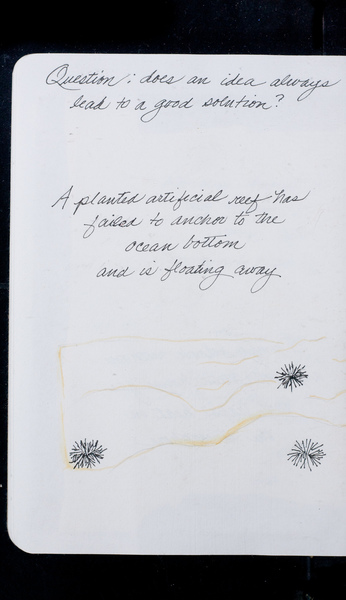 Question: does an idea always
lead to a good solution?
A planted artificial reef has
failed to anchor to the
ocean bottom
and is floating away